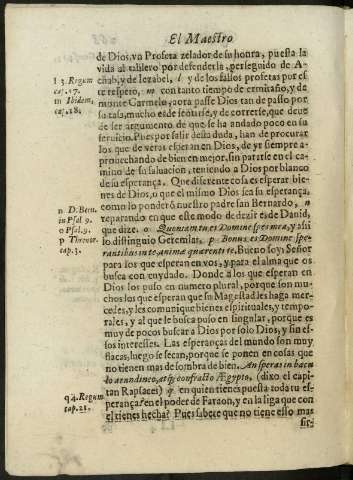 El Maestro
de Dios, vn Profeta zelador de su honra, puesta la
vida al tablero por defenderla, perseguido de A-
chab, y de Iezabel, l y de los falsos profetas por es
te respeto, m con tanto tiempo de ermitaño, y de
monte Carmelo, aora passe Dios tan de passo por
su casa, mucho es de sentirse, y de correrse, que deue
de ser argumento de que se ha andado poco en su
seruicio. Pues por salir desta duda, han de procurar
los que de veras esperan en Dios, de yr siempre a-
prouechando de bien en mejor, sin pararse en el ca-
mino de su saluacion, teniendo a Dios por blanco
de su esperança. Que diferente cosa es esperar bie-
nes de Dios, o que el mismo Dios sea su esperança,
como lo ponderô nuestro padre san Bernardo, n
reparando en que este modo de dezir es de Dauid,
que dize. o Quoniam tu es Domine spes mea, y assi
lo distinguio Geremias, p Bonus es Domine spe-
rantibus in te, animæ quærenti te. Bueno soys Señor
para los que esperan en vos, y para el alma que os
busca con cuydado. Donde â los que esperan en
Dios los puso en numero plural, porque son mu-
chos los que esperan que su Magestad les haga mer-
cedes, y les comunique bienes espirituales, y tempo-
rales, y al que le busca puso en singular, porque es
muy de pocos buscar a Dios por solo Dios, y sin es-
sos interesses. Las esperanças del mundo son muy
flacas, luego se secan, porque se ponen en cosas que
no tienen mas de sombra de bien. An speras in bacu
lo arundineo, atq; confracto Ægypto, (dixo el capi-
tan Rapsaces) q en quien tienes puesta toda tu es-
perança? en el poder de Faraon, y en la liga que con
el tienes hecha? Pues sabete que no tiene esso mas
sir-
l 3. Regum
cap. 17.
m Ibidem,
cap. 18.
n D. Bern.
in Psal. 9.
o Psal. 9.
p Thren.
cap. 3.
q 4. Regum
cap. 21.